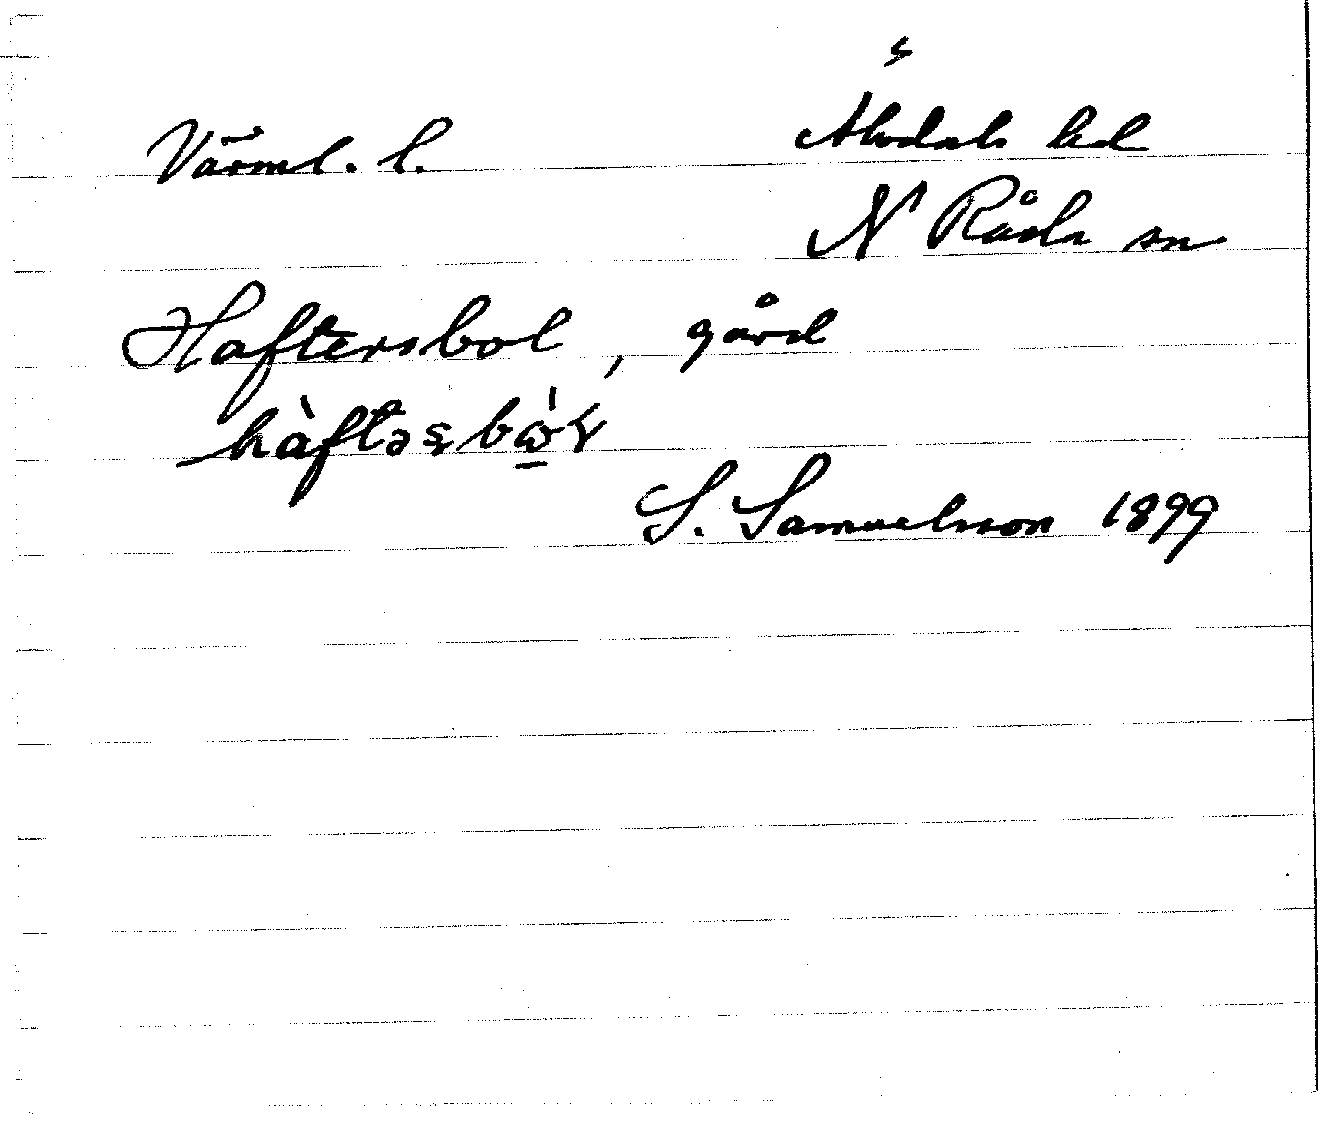 s
Värml. l. Älvdals hd
N Råda sn
Haftersbol, gård
hàftəsbὼɽ
S. Samuelsson 1899